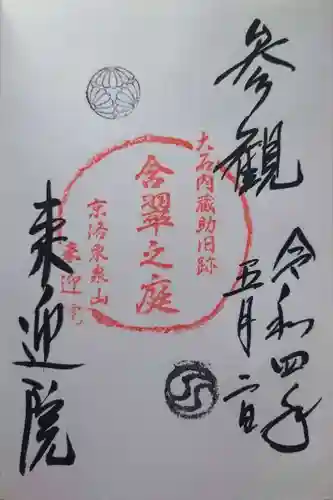 参観
令和四年
五月二日
大石内蔵助旧跡
含翠之庭
京洛東泉山
来迎院
来迎院